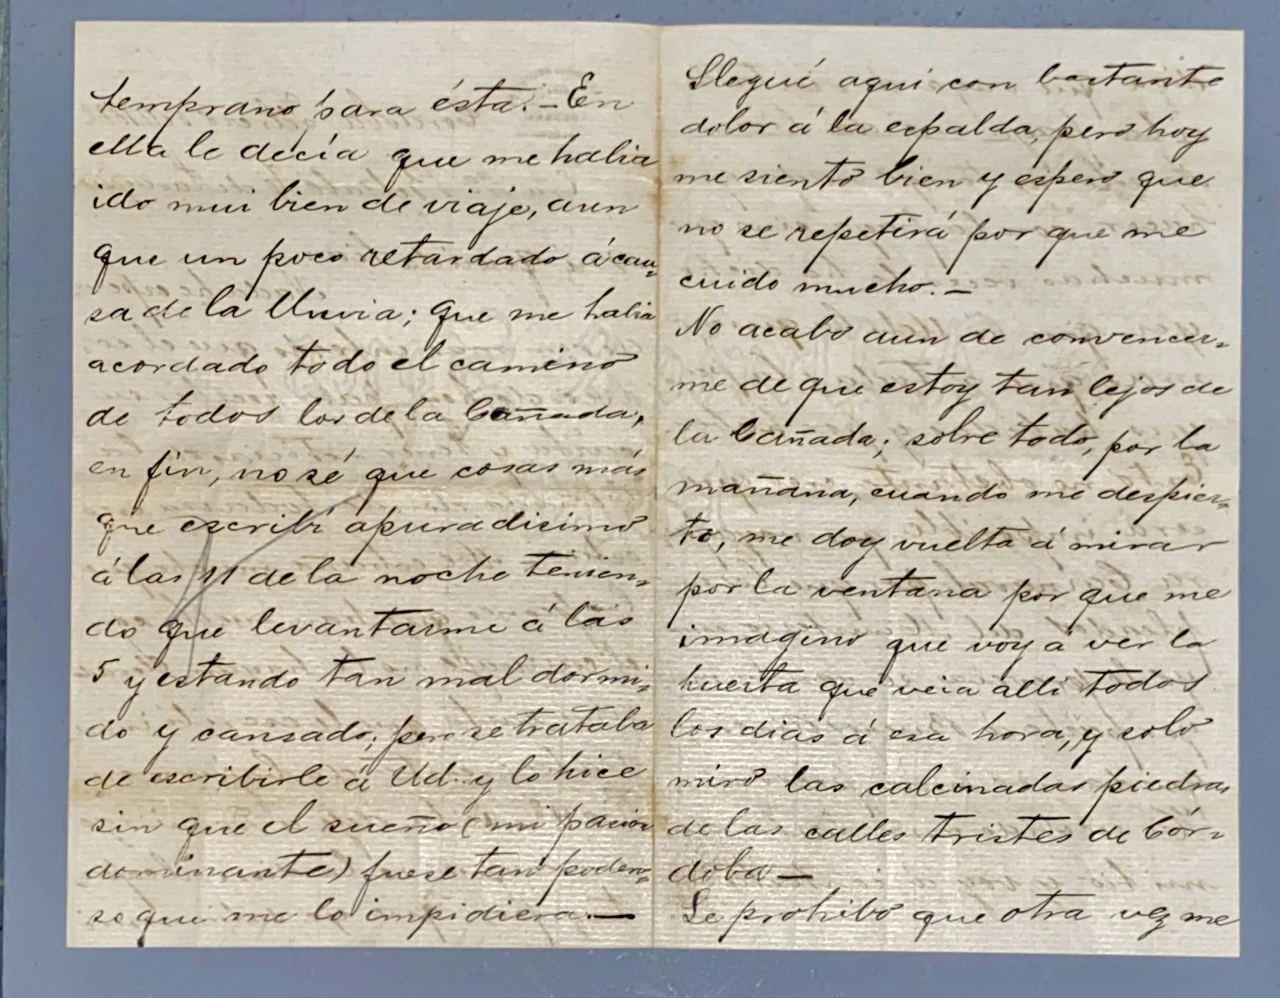 temprano para ésta.— En
ella le decía que me habia
ido mui bien de viaje, aun
que un poco retardado á cau=
sa de la lluvia; que me habia
acordado todo el camino
de todos los de la Cañada,
en fin, no sé que cosas más
que escribí apuradisimo
á las 11 de la noche tenien=
do que levantarme á las
5 y estando tan mal dormi=
do y cansado; pero se trataba
de escribirle á Ud. y lo hice
sin que el sueño (mi pasion
dominante) fuese tan podero=
so que me lo impidiera.—
Llegué aqui con bastante
dolor á la espalda, pero hoy
me siento bien y espero que
no se repetirá por que me
cuido mucho.—
No acabo aun de convencer=
me de que estoy tan lejos de
la Cañada; sobre todo, por la
mañana, cuando me despier=
to, me doy vuelta á mirar
por la ventana por que me
imagino que voy á ver la
huerta que veia alli todos
los dias á esa hora, y solo
miro las calcinadas piedras
de las calles tristes de Cór=
doba—
Le prohibo que otra vez me